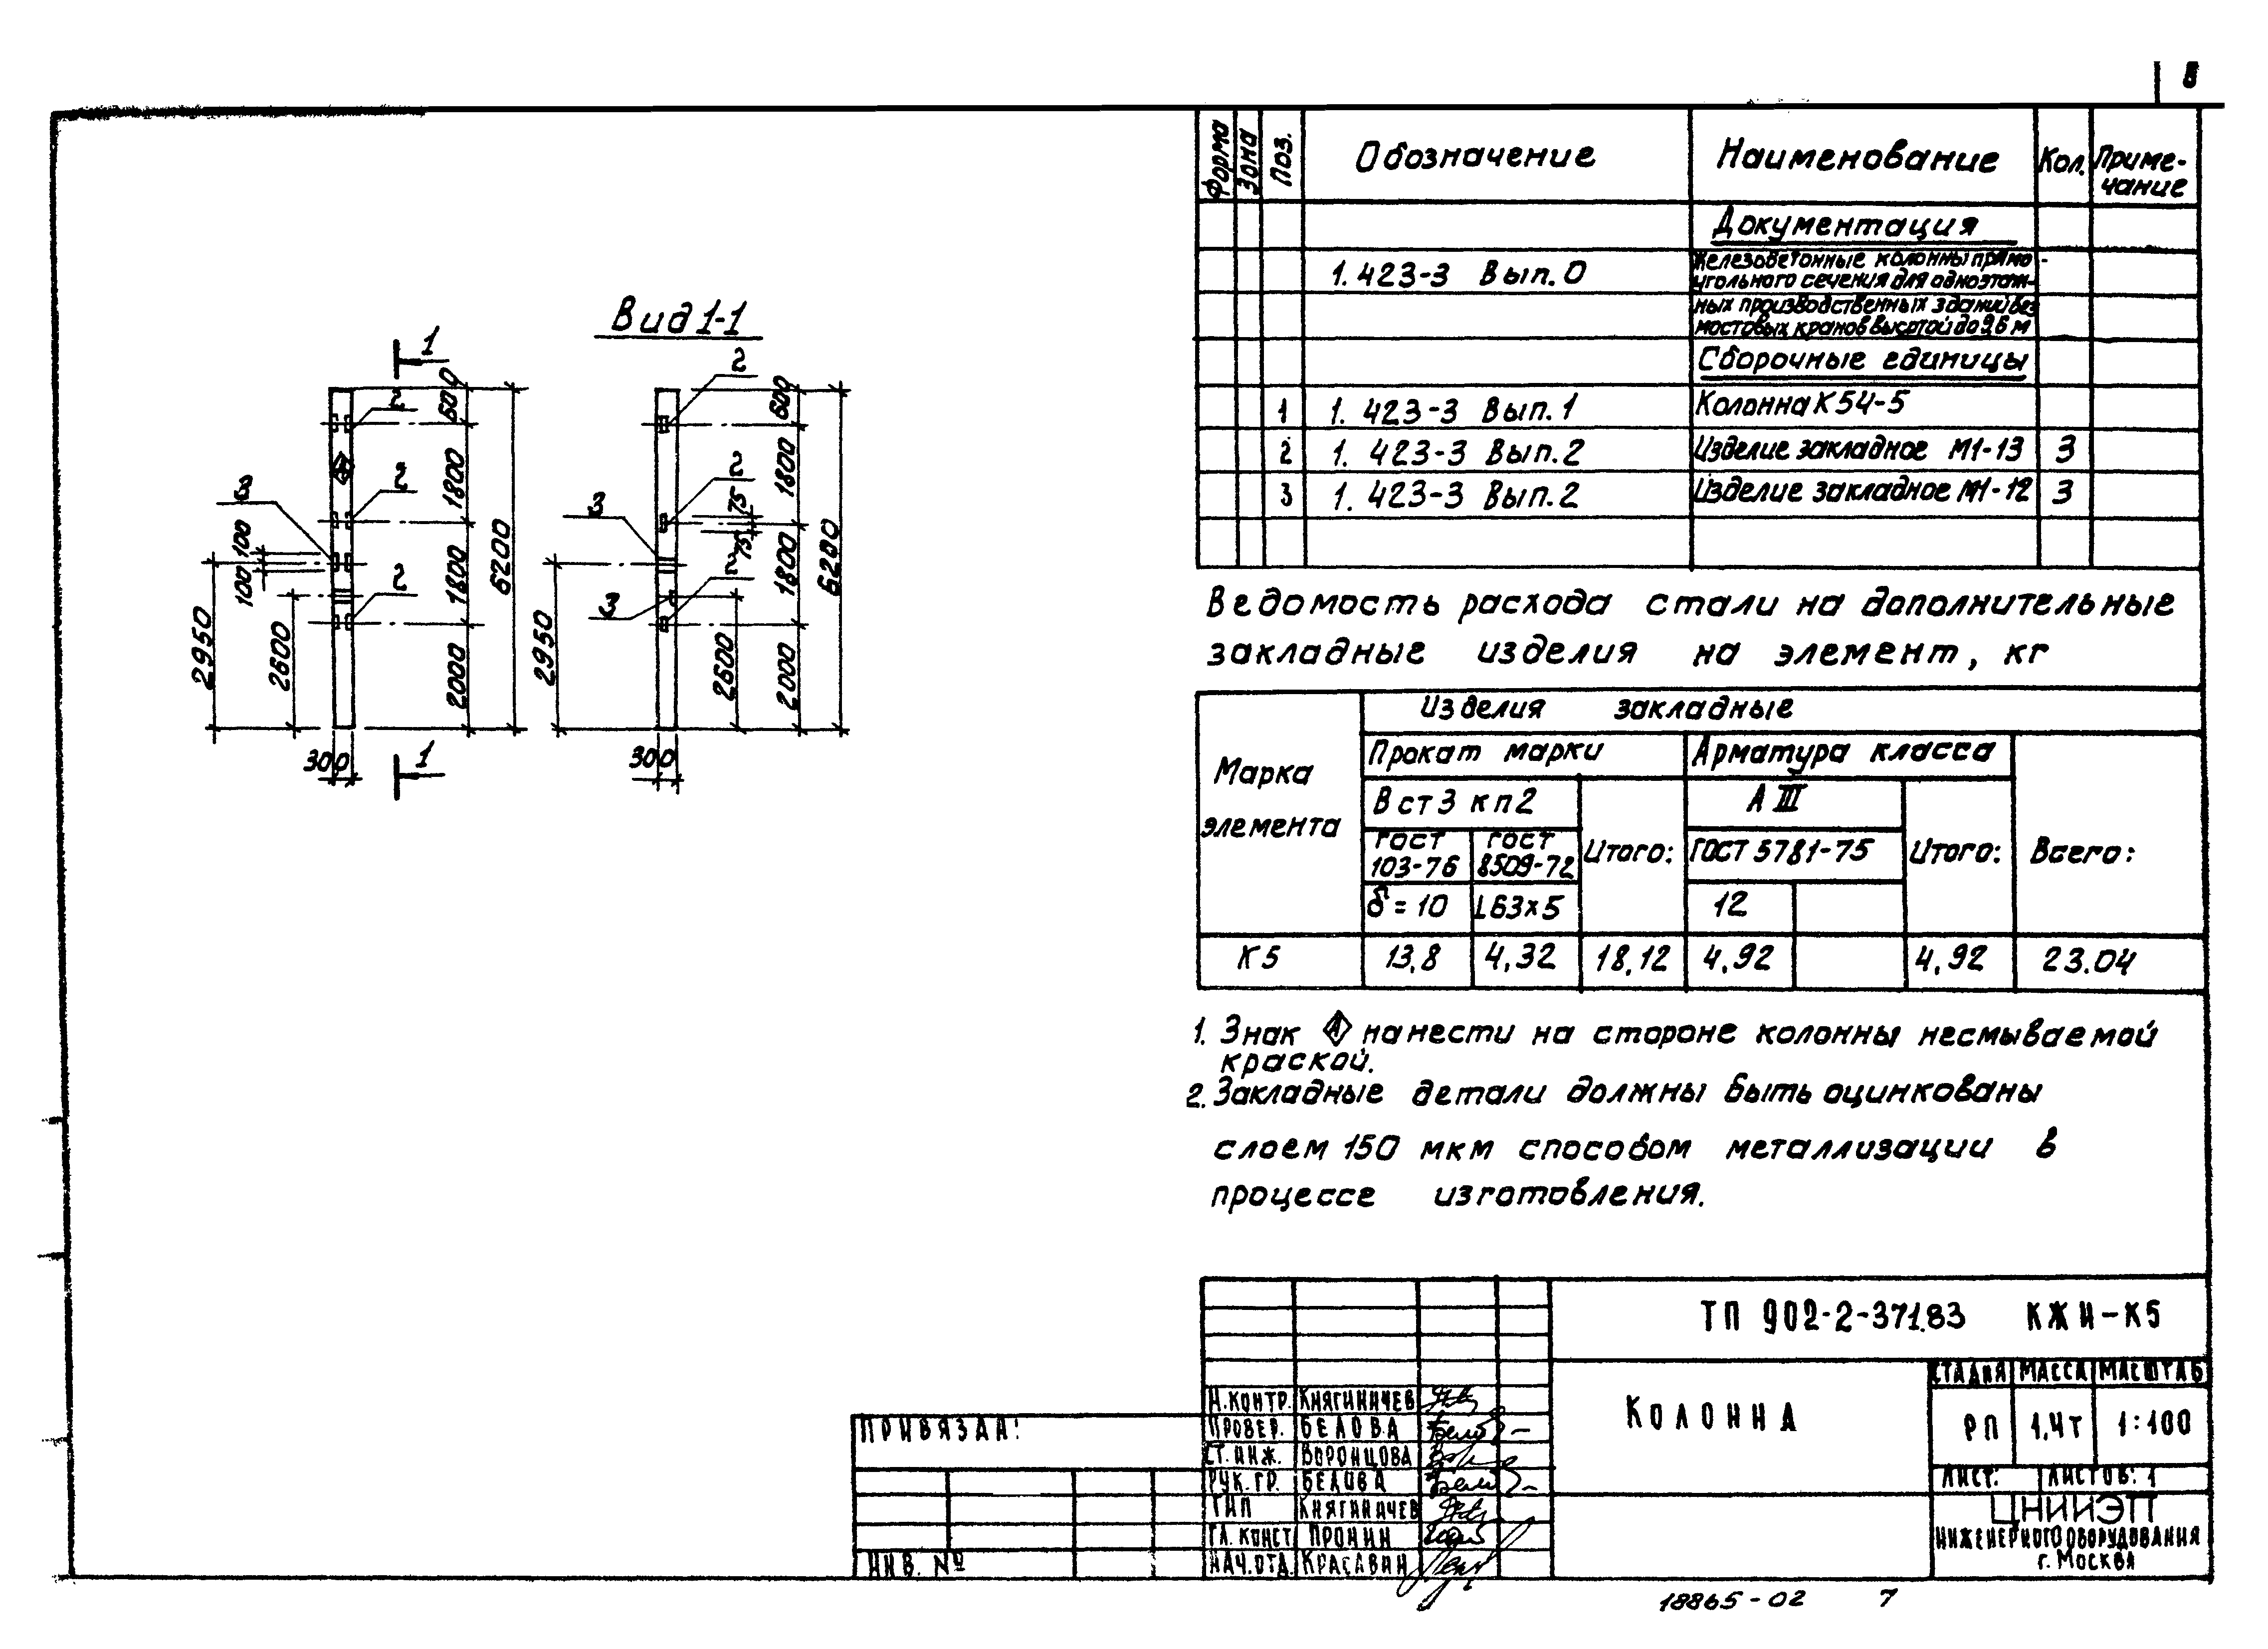 Вид 1-1
1
2
600
1800
6200
3
100
100
2
1800
2
2950
2600
2000
300
1
2
600
2
1800
75
75
3
2
1800
6200
3
2950
2600
2000
300
Форма Зона Поз. Обозначение Наименование Кол. Приме-
чание
Документация
1.423-3 Вып. 0 Железобетонные колонны прямо-
угольного сечения для одноэтаж-
ных производственных зданий без
мостовых кранов высотой до 9,6 м
Сборочные единицы
1 1. 423-3 Вып. 1 Колонна К 54-5
2 1. 423-3 Вып. 2 Изделие закладное М1-13 3
3 1. 423-3 Вып. 2 Изделие закладное М1-12 3
Ведомость расхода стали на дополнительные
закладные изделия на элемент, кг
Марка
элемента
Изделия закладные
Прокат марки Арматура класса
В ст 3 кп 2 А III
ГОСТ
103-76
ГОСТ
8509-72
Итого: ГОСТ 5781-75 Итого: Всего:
δ = 10 L63×5 12
К 5 13,8 4,32 18,12 4,92 4,92 23.04
1. Знак нанести на стороне колонны несмываемой
краской.
2. Закладные детали должны быть оцинкованы
слоем 150 мкм способом металлизации в
процессе изготовления.
ТП 902-2-371.83 КЖИ-К5
Колонна
СТАДИЯ МАССА МАСШТАБ
РП 1,4т 1:100
ЛИСТ: ЛИСТОВ: 1
ЦНИИЭП
ИНЖЕНЕРНОГО ОБОРУДОВАНИЯ
г. МОСКВА
Н.КОНТР. КНЯГИНИЧЕВ
ПРОВЕР. БЕЛОВА
СТ.ИНЖ. ВОРОНЦОВА
РУК.ГР. БЕЛОВА
ГИП КНЯГИНИЧЕВ
ГЛ. КОНСТ ПРОНИН
НАЧ.ОТД. КРАСАВИН
ПРИВЯЗАН:
ИНВ. №
18865-02 7